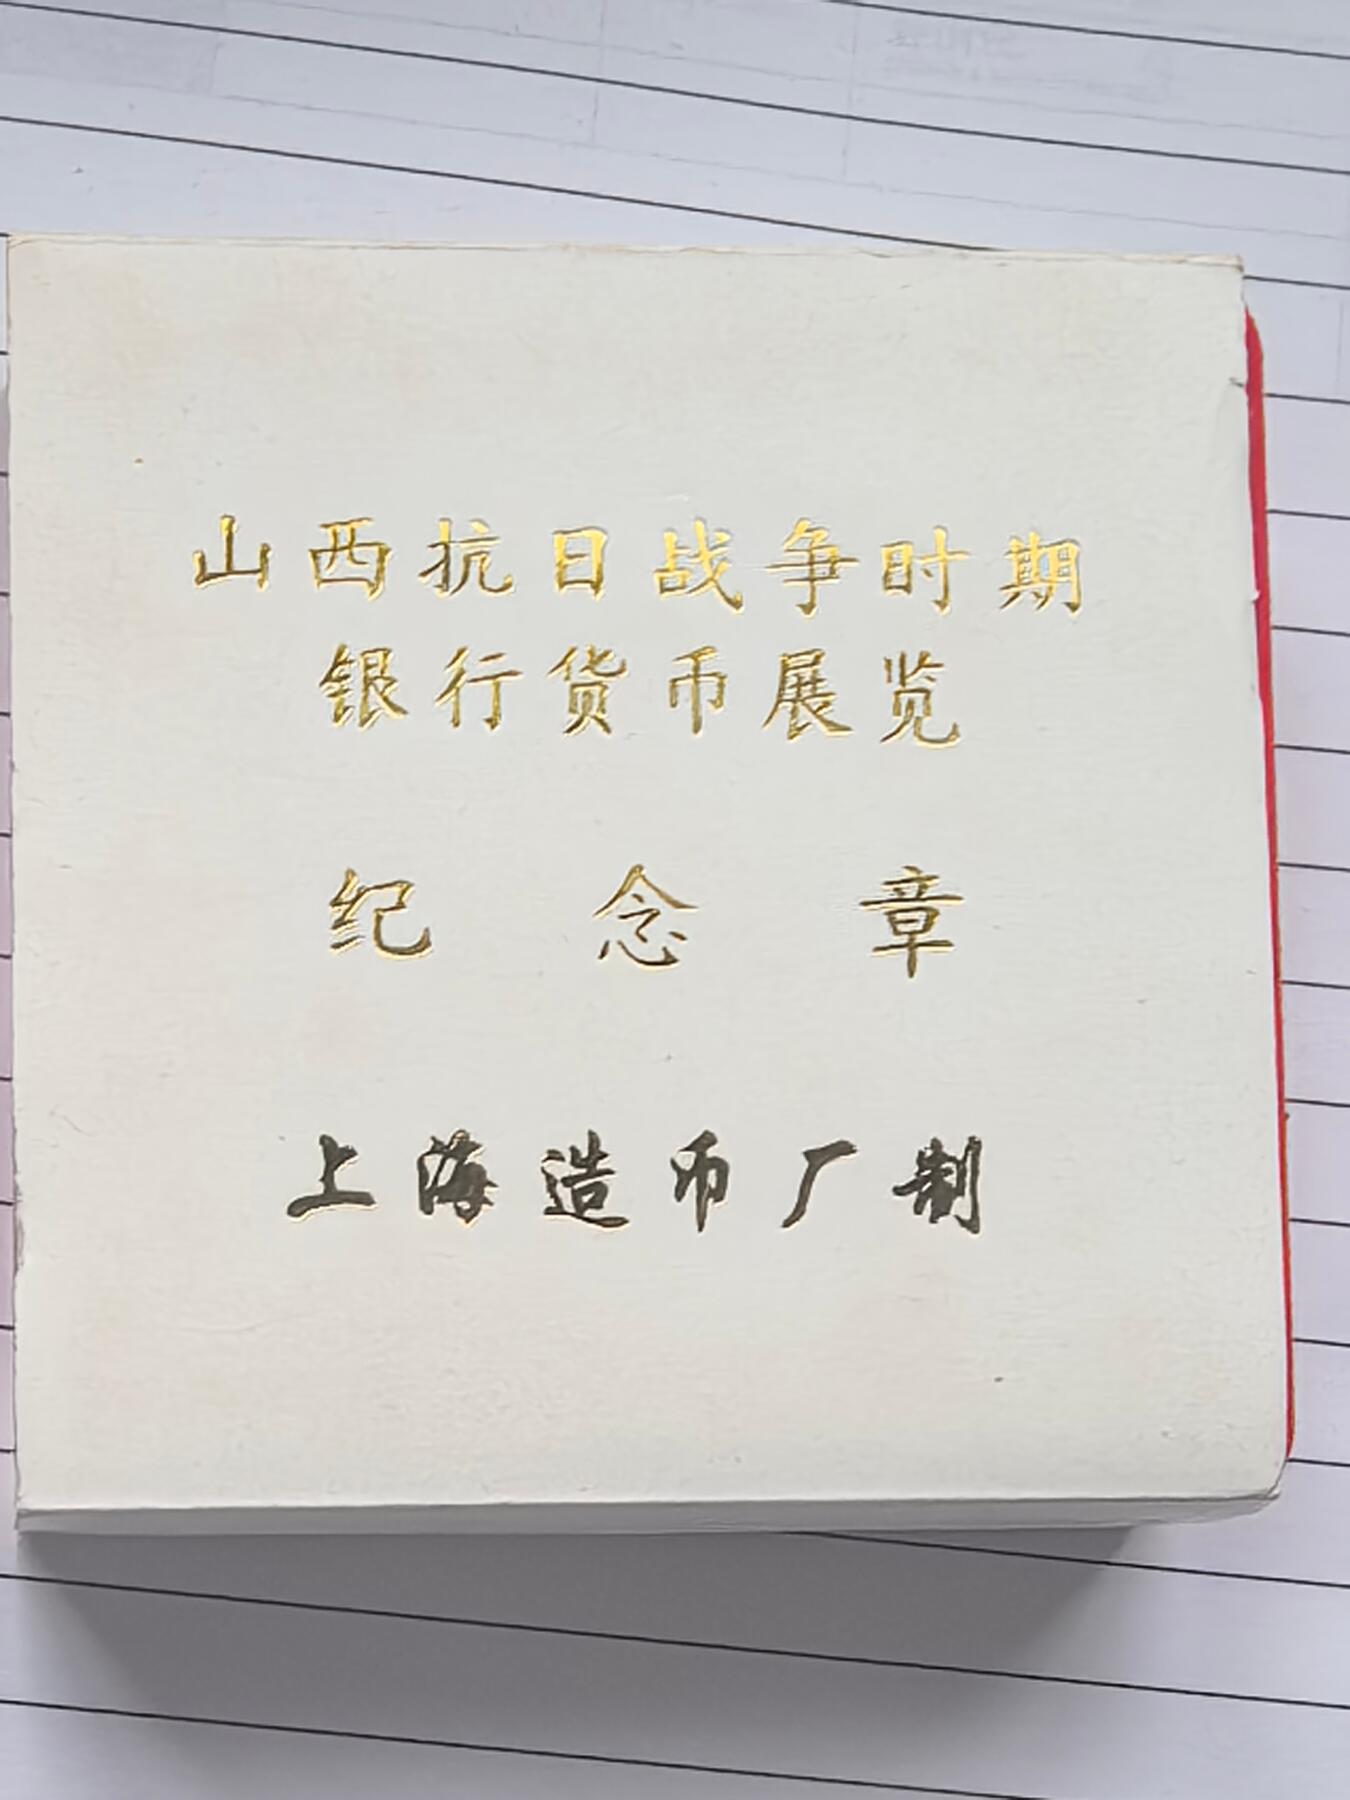 山西抗日战争时期
银行货币展览
纪念章
上海造币厂制